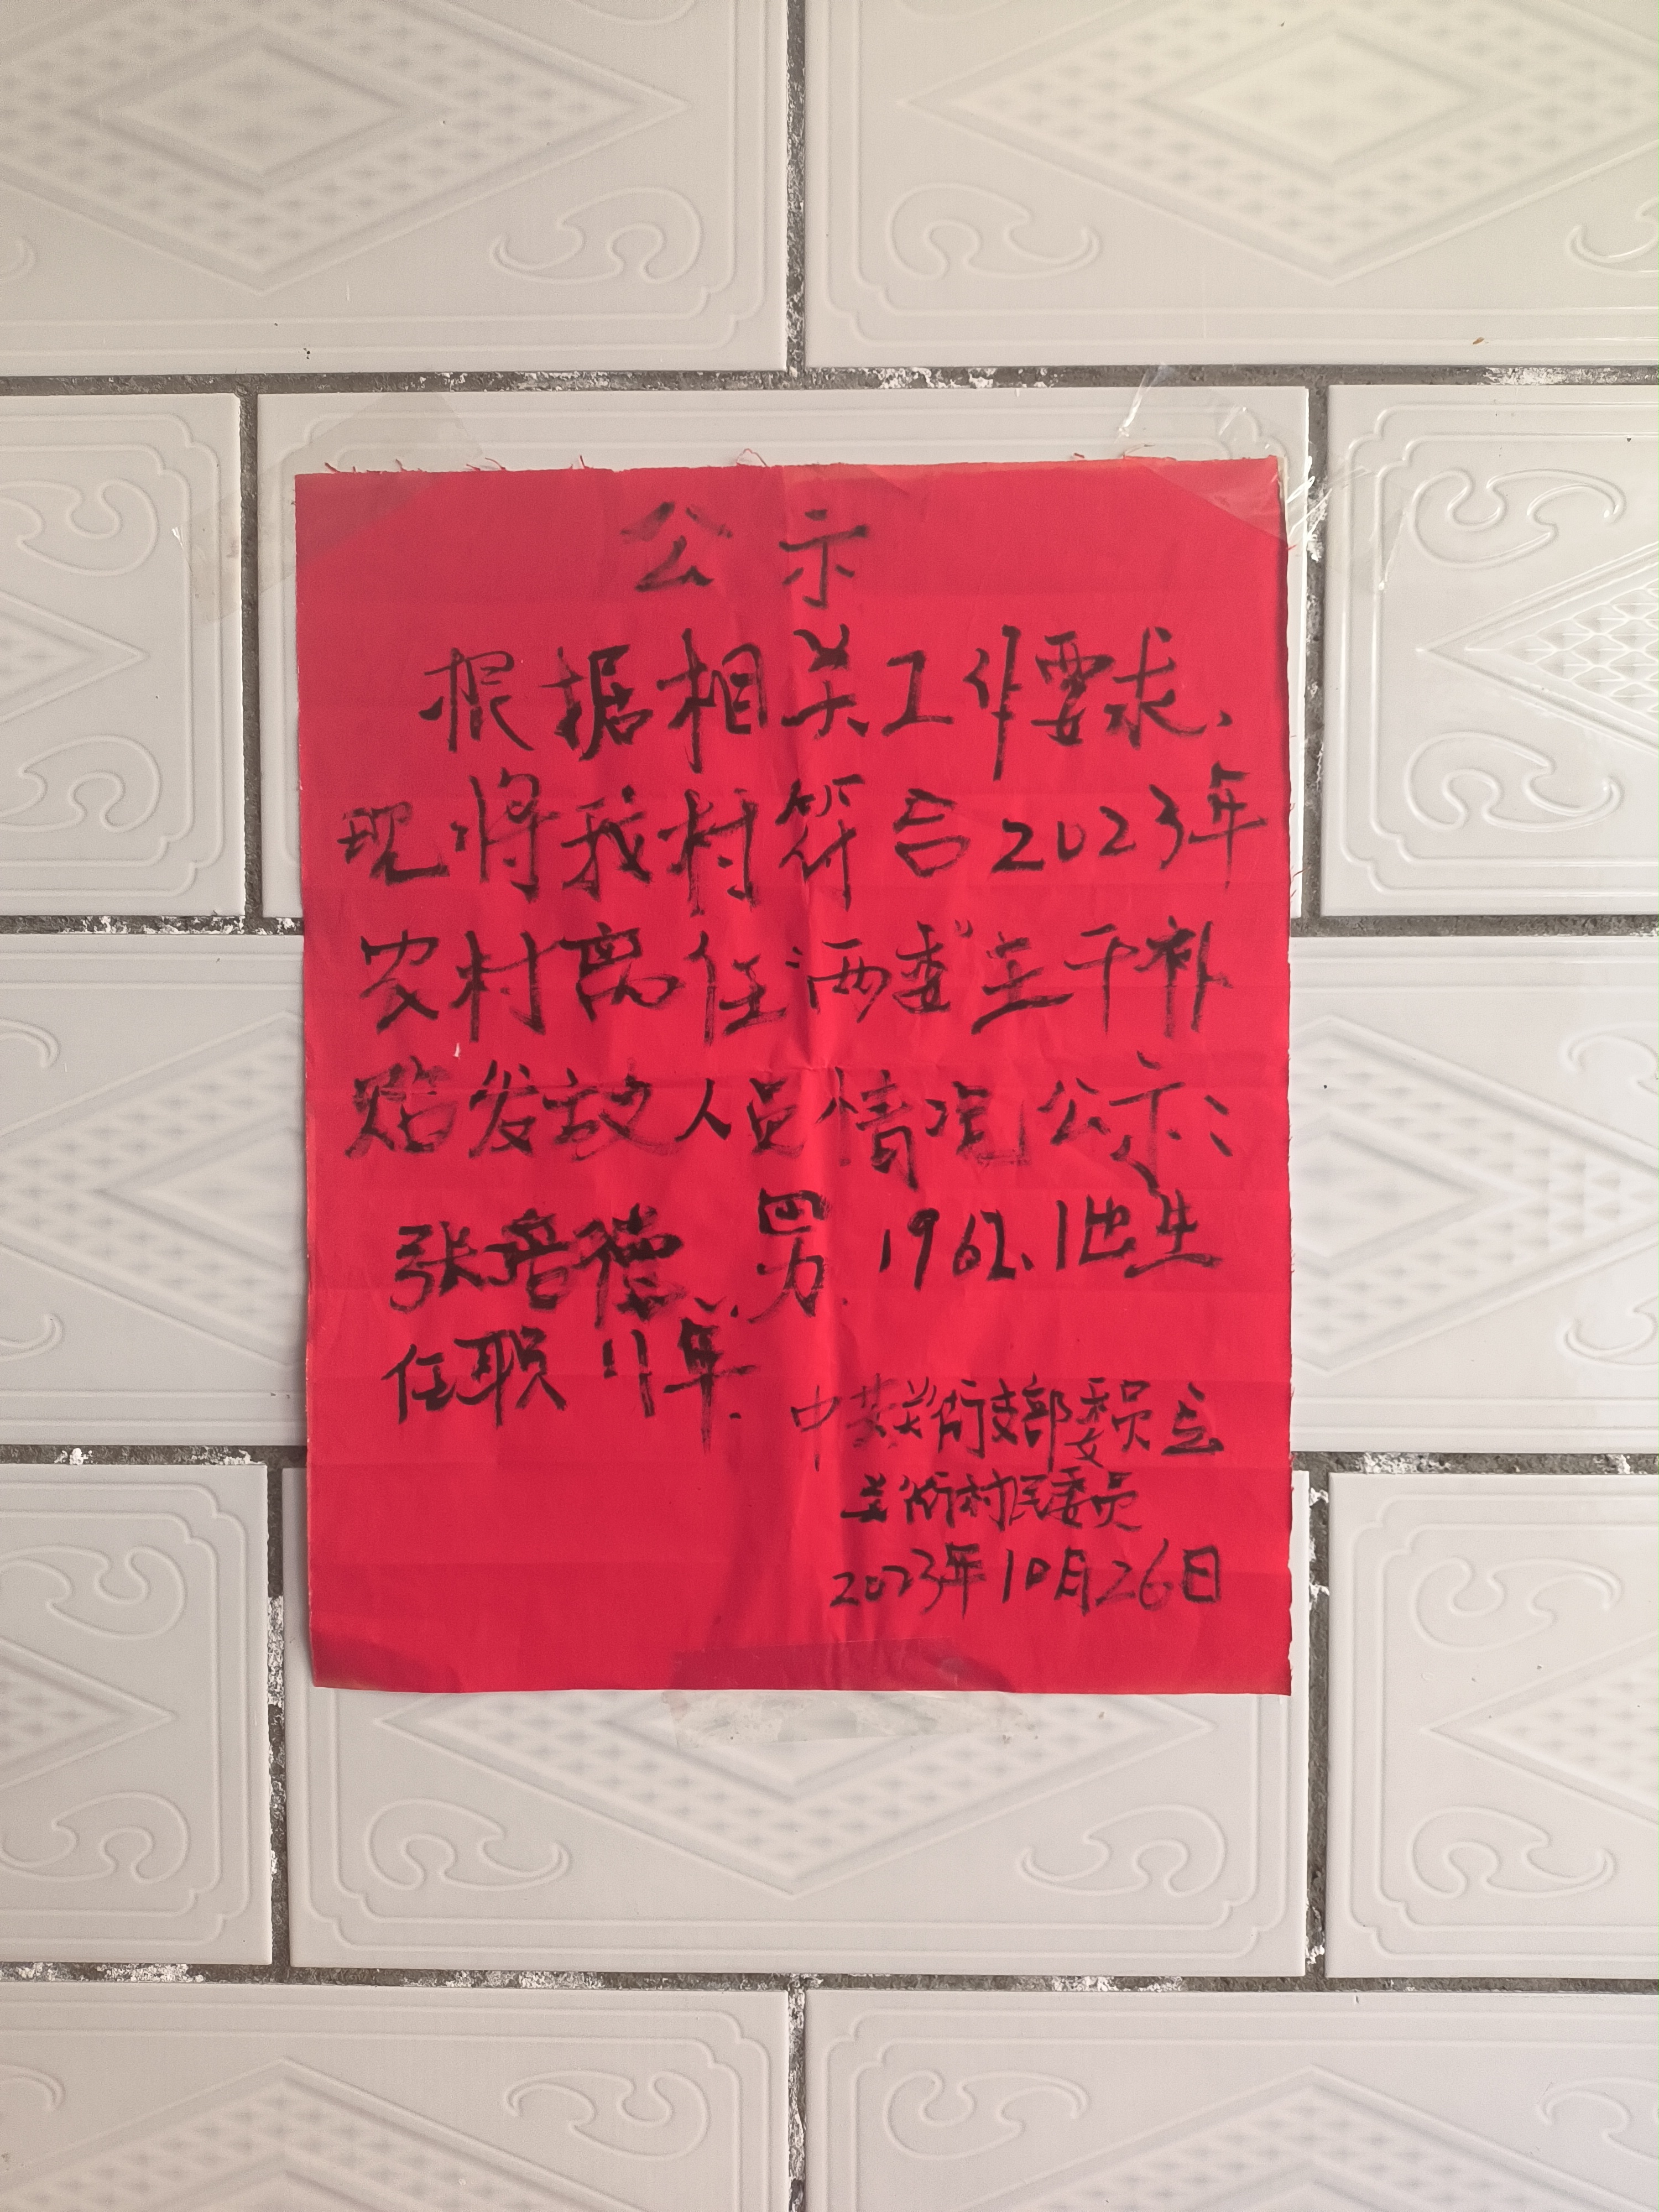 公示
根据相关工作要求,
现将我村符合2023年
农村离任"两委"主干补
贴发放人员情况公示:
张 德、男.1962.1出生
任职11年.
中共 街支部委员会
街村民委员
2023年10月26日